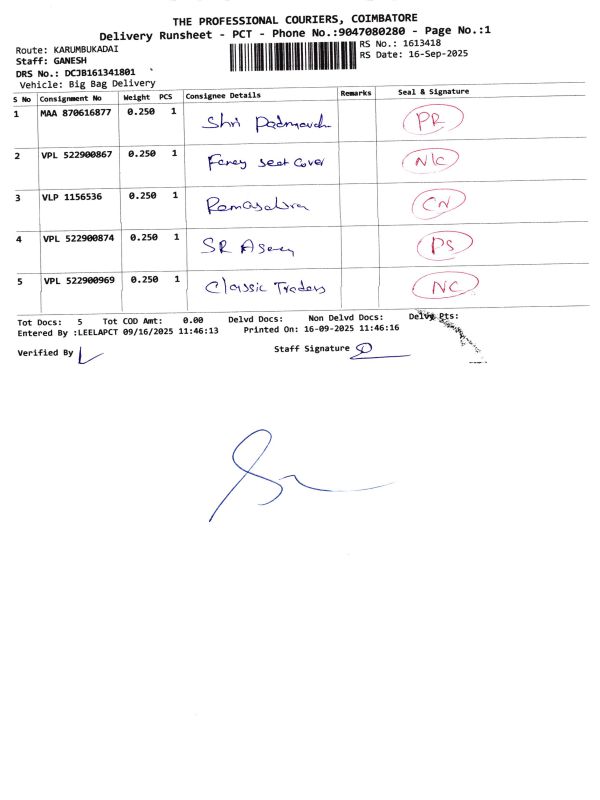 THE PROFESSIONAL COURIERS, COIMBATORE
Delivery Runsheet - PCT - Phone No.:9047080280 - Page No.:1
Route: KARUMBUKADAI RS No.: 1613418
Staff: GANESH RS Date: 16-Sep-2025
DRS No.: DCJB161341801
Vehicle: Big Bag Delivery
S No Consignment No Weight PCS Consignee Details Remarks Seal & Signature
1 MAA 870616877 0.250 1 Shri PR
2 VPL 522900867 0.250 1 Fancy Seat Cover
3 VLP 1156536 0.250 1 CN
4 VPL 522900874 0.250 1 SR PS
5 VPL 522900969 0.250 1 Classic Traders NC
Tot Docs: 5 Tot COD Amt: 0.00 Delvd Docs: Non Delvd Docs: Delvd Pts:
Entered By :LEELAPCT 09/16/2025 11:46:13 Printed On: 16-09-2025 11:46:16
Verified By Staff Signature